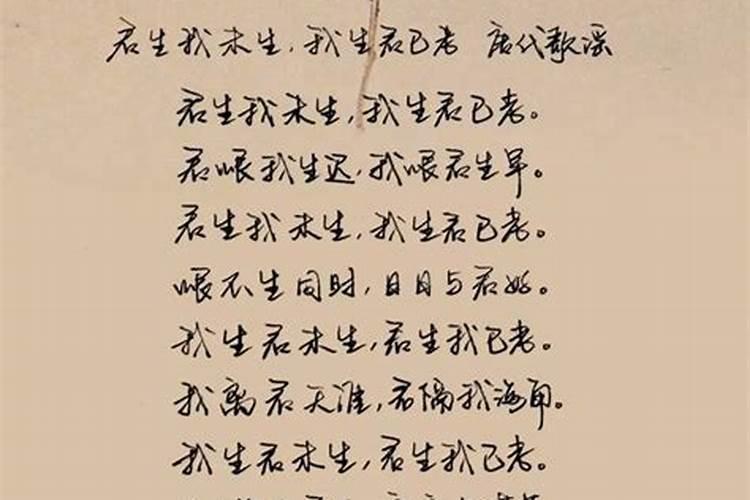 君生我未生,我生君已老 唐代歌谣
君生我未生,我生君已老。
君恨我生迟,我恨君生早。
君生我未生,我生君已老。
恨不生同时,日日与君好。
我生君未生,君生我已老。
我离君天涯,君隔我海角。
我生君未生,君生我已老。